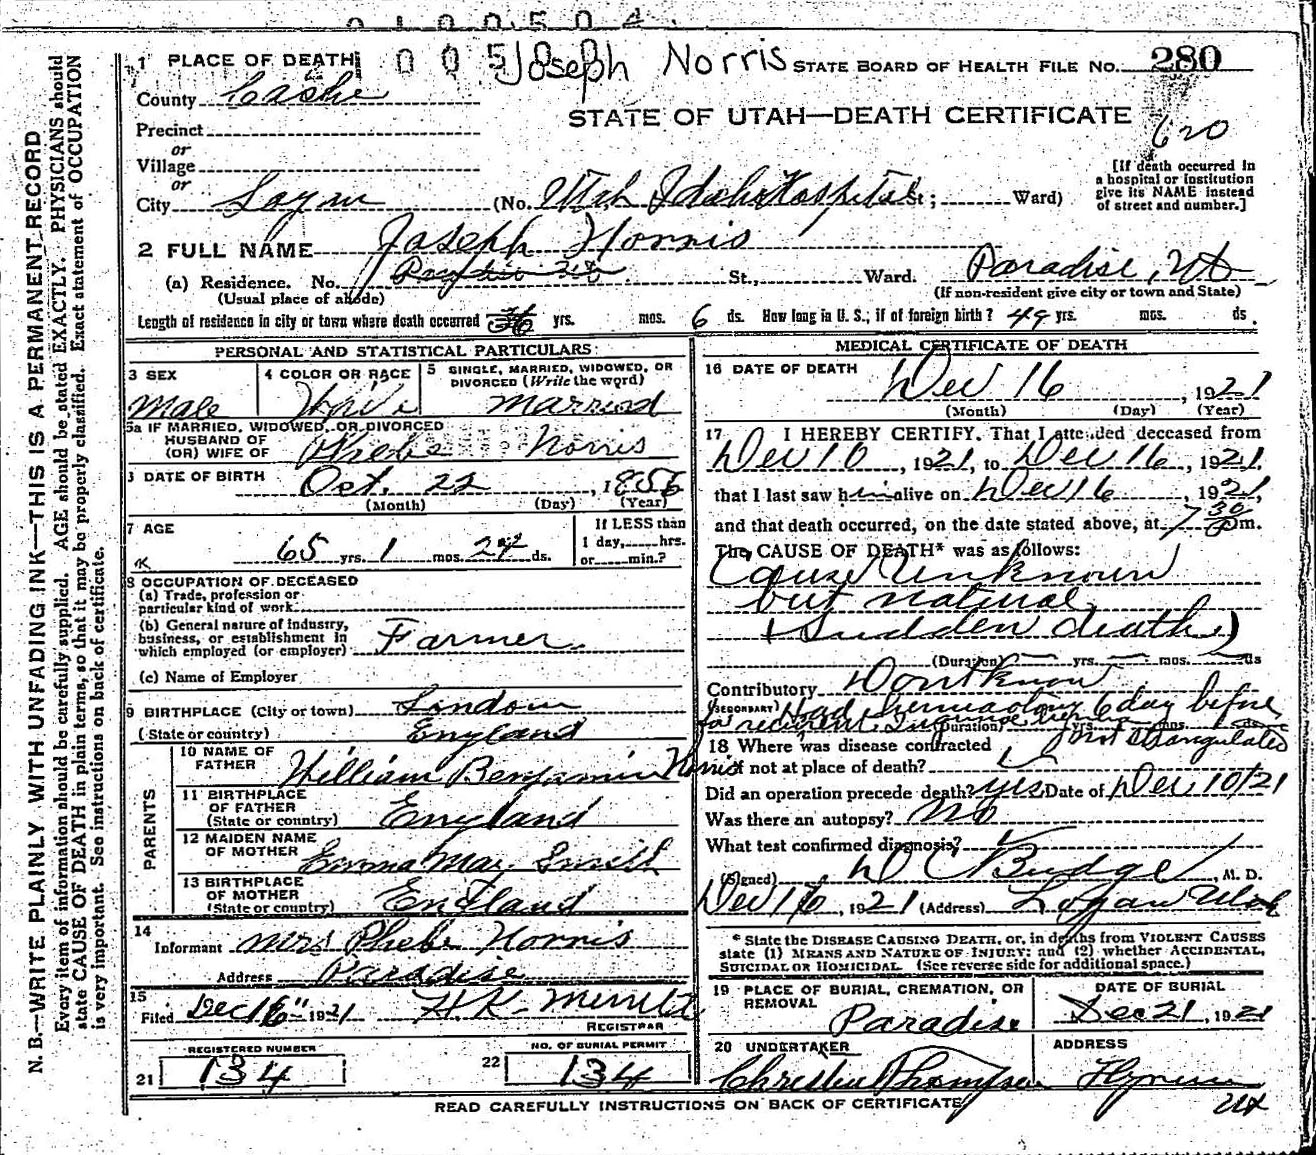 0100504
1 PLACE OF DEATH 1005 Joseph Norris STATE BOARD OF HEALTH FILE NO. 280
County Cashe
STATE OF UTAH—DEATH CERTIFICATE
620
Precinct
or
Village
or
City Logan (No. Utah Idaho Hospital St; Ward)
[If death occurred in
a hospital or institution
give its NAME instead
of street and number.]
2 FULL NAME Joseph Norris
(a) Residence. No. St., Ward. Paradise, Ut
(Usual place of abode) (If non-resident give city or town and State)
Length of residence in city or town where death occurred yrs. mos. 6 ds. How long in U. S.; if of foreign birth? 49 yrs. mos. ds.
PERSONAL AND STATISTICAL PARTICULARS
3 SEX 4 COLOR OR RACE 5 SINGLE, MARRIED, WIDOWED, OR
DIVORCED (Write the word)
Male White Married
5a IF MARRIED, WIDOWED, OR DIVORCED
HUSBAND OF
(OR) WIFE OF Phebe Norris
6 DATE OF BIRTH Oct. 22, 1856
(Month) (Day) (Year)
7 AGE
65 yrs. 1 mos. 24 ds.
If LESS than
1 day, hrs.
or min.?
8 OCCUPATION OF DECEASED
(a) Trade, profession or
particular kind of work
(b) General nature of industry,
business, or establishment in
which employed (or employer) Farmer
(c) Name of Employer
9 BIRTHPLACE (City or town) London
(State or country) England
PARENTS
10 NAME OF
FATHER William Benjamin Norris
11 BIRTHPLACE
OF FATHER
(State or country) England
12 MAIDEN NAME
OF MOTHER Emma May Smith
13 BIRTHPLACE
OF MOTHER
(State or country) England
14
Informant Mrs Phebe Norris
Address Paradise
15
Filed Dec 16" 1921 H.K. Merrill
REGISTRAR
REGISTERED NUMBER NO. OF BURIAL PERMIT
21 134 22 134
MEDICAL CERTIFICATE OF DEATH
16 DATE OF DEATH
Dec 16, 1921
(Month) (Day) (Year)
17 I HEREBY CERTIFY, That I attended deceased from
Dec 10, 1921, to Dec 16, 1921,
that I last saw him alive on Dec 16, 1921,
and that death occurred, on the date stated above, at 7 30 Pm.
The CAUSE OF DEATH* was as follows:
Cause Unknown
but natural
(sudden death)
(Duration) yrs. mos. ds
Contributory Dont know
(SECONDARY) Had herniaotomy 6 day before
for recurrent Inguinal hernia
(Duration) yrs. mos. ds.
not strangulated
18 Where was disease contracted
if not at place of death?
Did an operation precede death? yes Date of Dec 10/21
Was there an autopsy? No
What test confirmed diagnosis?
(Signed) D C Budge, M. D.
Dec 16, 1921 (Address) Logan Utah
* State the DISEASE CAUSING DEATH, or, in deaths from VIOLENT CAUSES
state (1) MEANS AND NATURE OF INJURY; and (2) whether ACCIDENTAL,
SUICIDAL OR HOMICIDAL. (See reverse side for additional space.)
19 PLACE OF BURIAL, CREMATION, OR
REMOVAL
Paradise
DATE OF BURIAL
Dec 21, 1921
20 UNDERTAKER ADDRESS
Hyrum
Ut
READ CAREFULLY INSTRUCTIONS ON BACK OF CERTIFICATE
N. B.—WRITE PLAINLY WITH UNFADING INK—THIS IS A PERMANENT RECORD
Every item of information should be carefully supplied. AGE should be stated EXACTLY. PHYSICIANS should
state CAUSE OF DEATH in plain terms, so that it may be properly classified. Exact statement of OCCUPATION
is very important. See instructions on back of certificate.